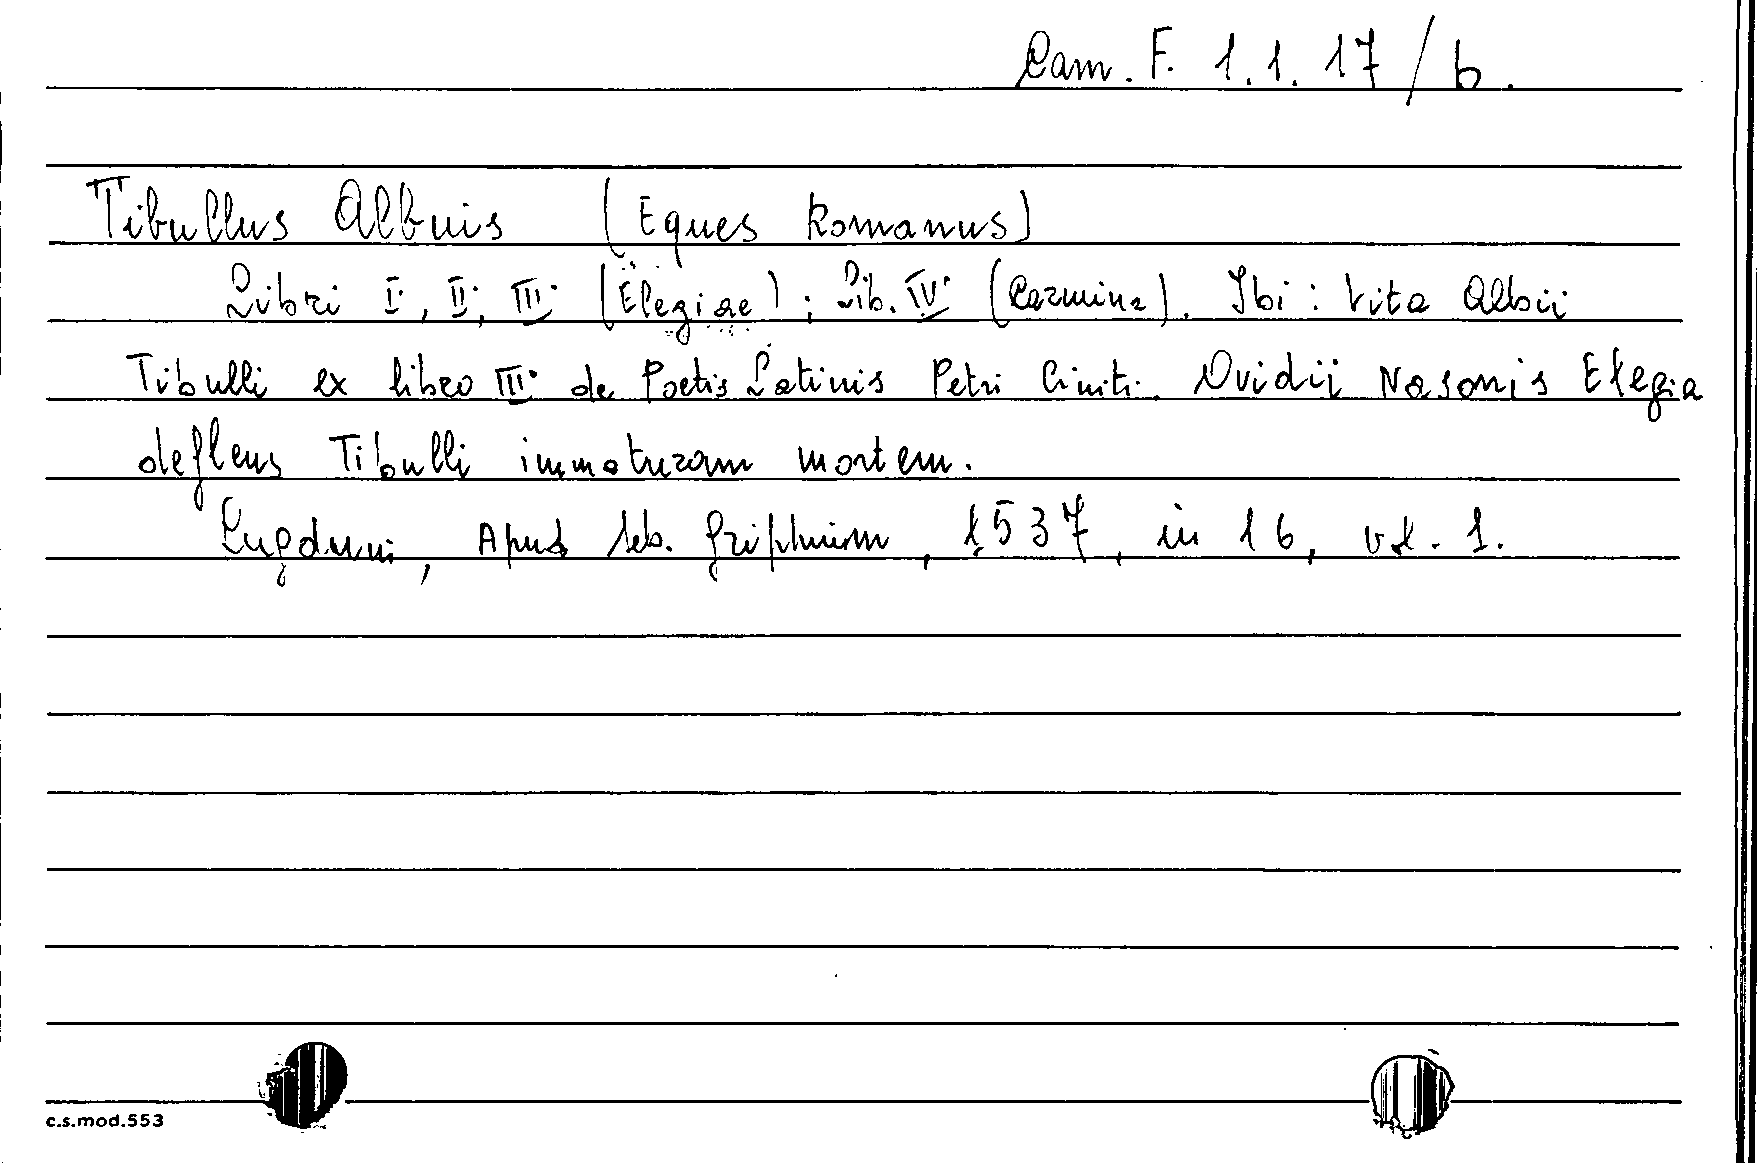 Cam. F. 1.1.17/b.
Tibullus Albius (Eques Romanus)
Libri I°, II°, III° (Elegiae); Lib. IV° (Carmina). Ibi: Vita Albii
Tibulli ex libro III° de Poetis Latinis Petri Criniti. Ovidii Nasonis Elegia
deflens Tibulli immaturam mortem.
Lugduni, Apud Seb. Griphium, 1537, in 16, vol. 1.
c.s.mod.553